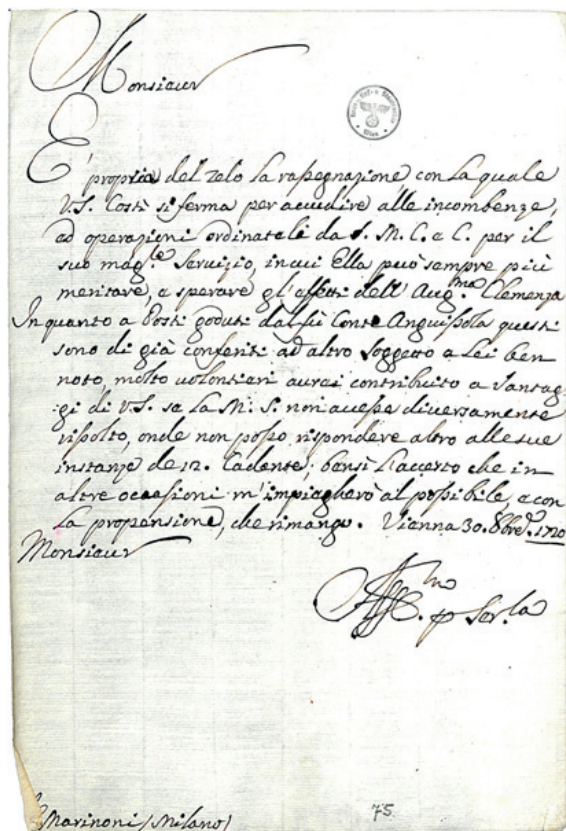 Monsieur
E' proprio del zelo la rassegnazione, con la quale
V.S. Costì si ferma per accudire alle incombenze,
ed operazioni ordinateli da S. M. C. e C. per il
suo mag.e Servizio, in cui Ella può sempre più
meritare, e sperare gl'effetti dell'Aug.ma Clemenza
In quanto a Posti goduti dal fù Conte Anguissola questi
sono di già conferiti ad altro soggetto a Lei ben
noto, molto volontieri aurei contribuito a vantag-
gi di V.S. se la M. S. non avesse diversamente
risolto, onde non posso rispondere altro alle sue
instanze de 12. Cadente; bensì l'accerto che in
altre occasioni m'impiegherò al possibile, e con
la propensione, che rimango. Vienna 30. 8bre 1720
Monsieur
Aff.mo p Ser.la
Marinoni (Milano)
75
Wien